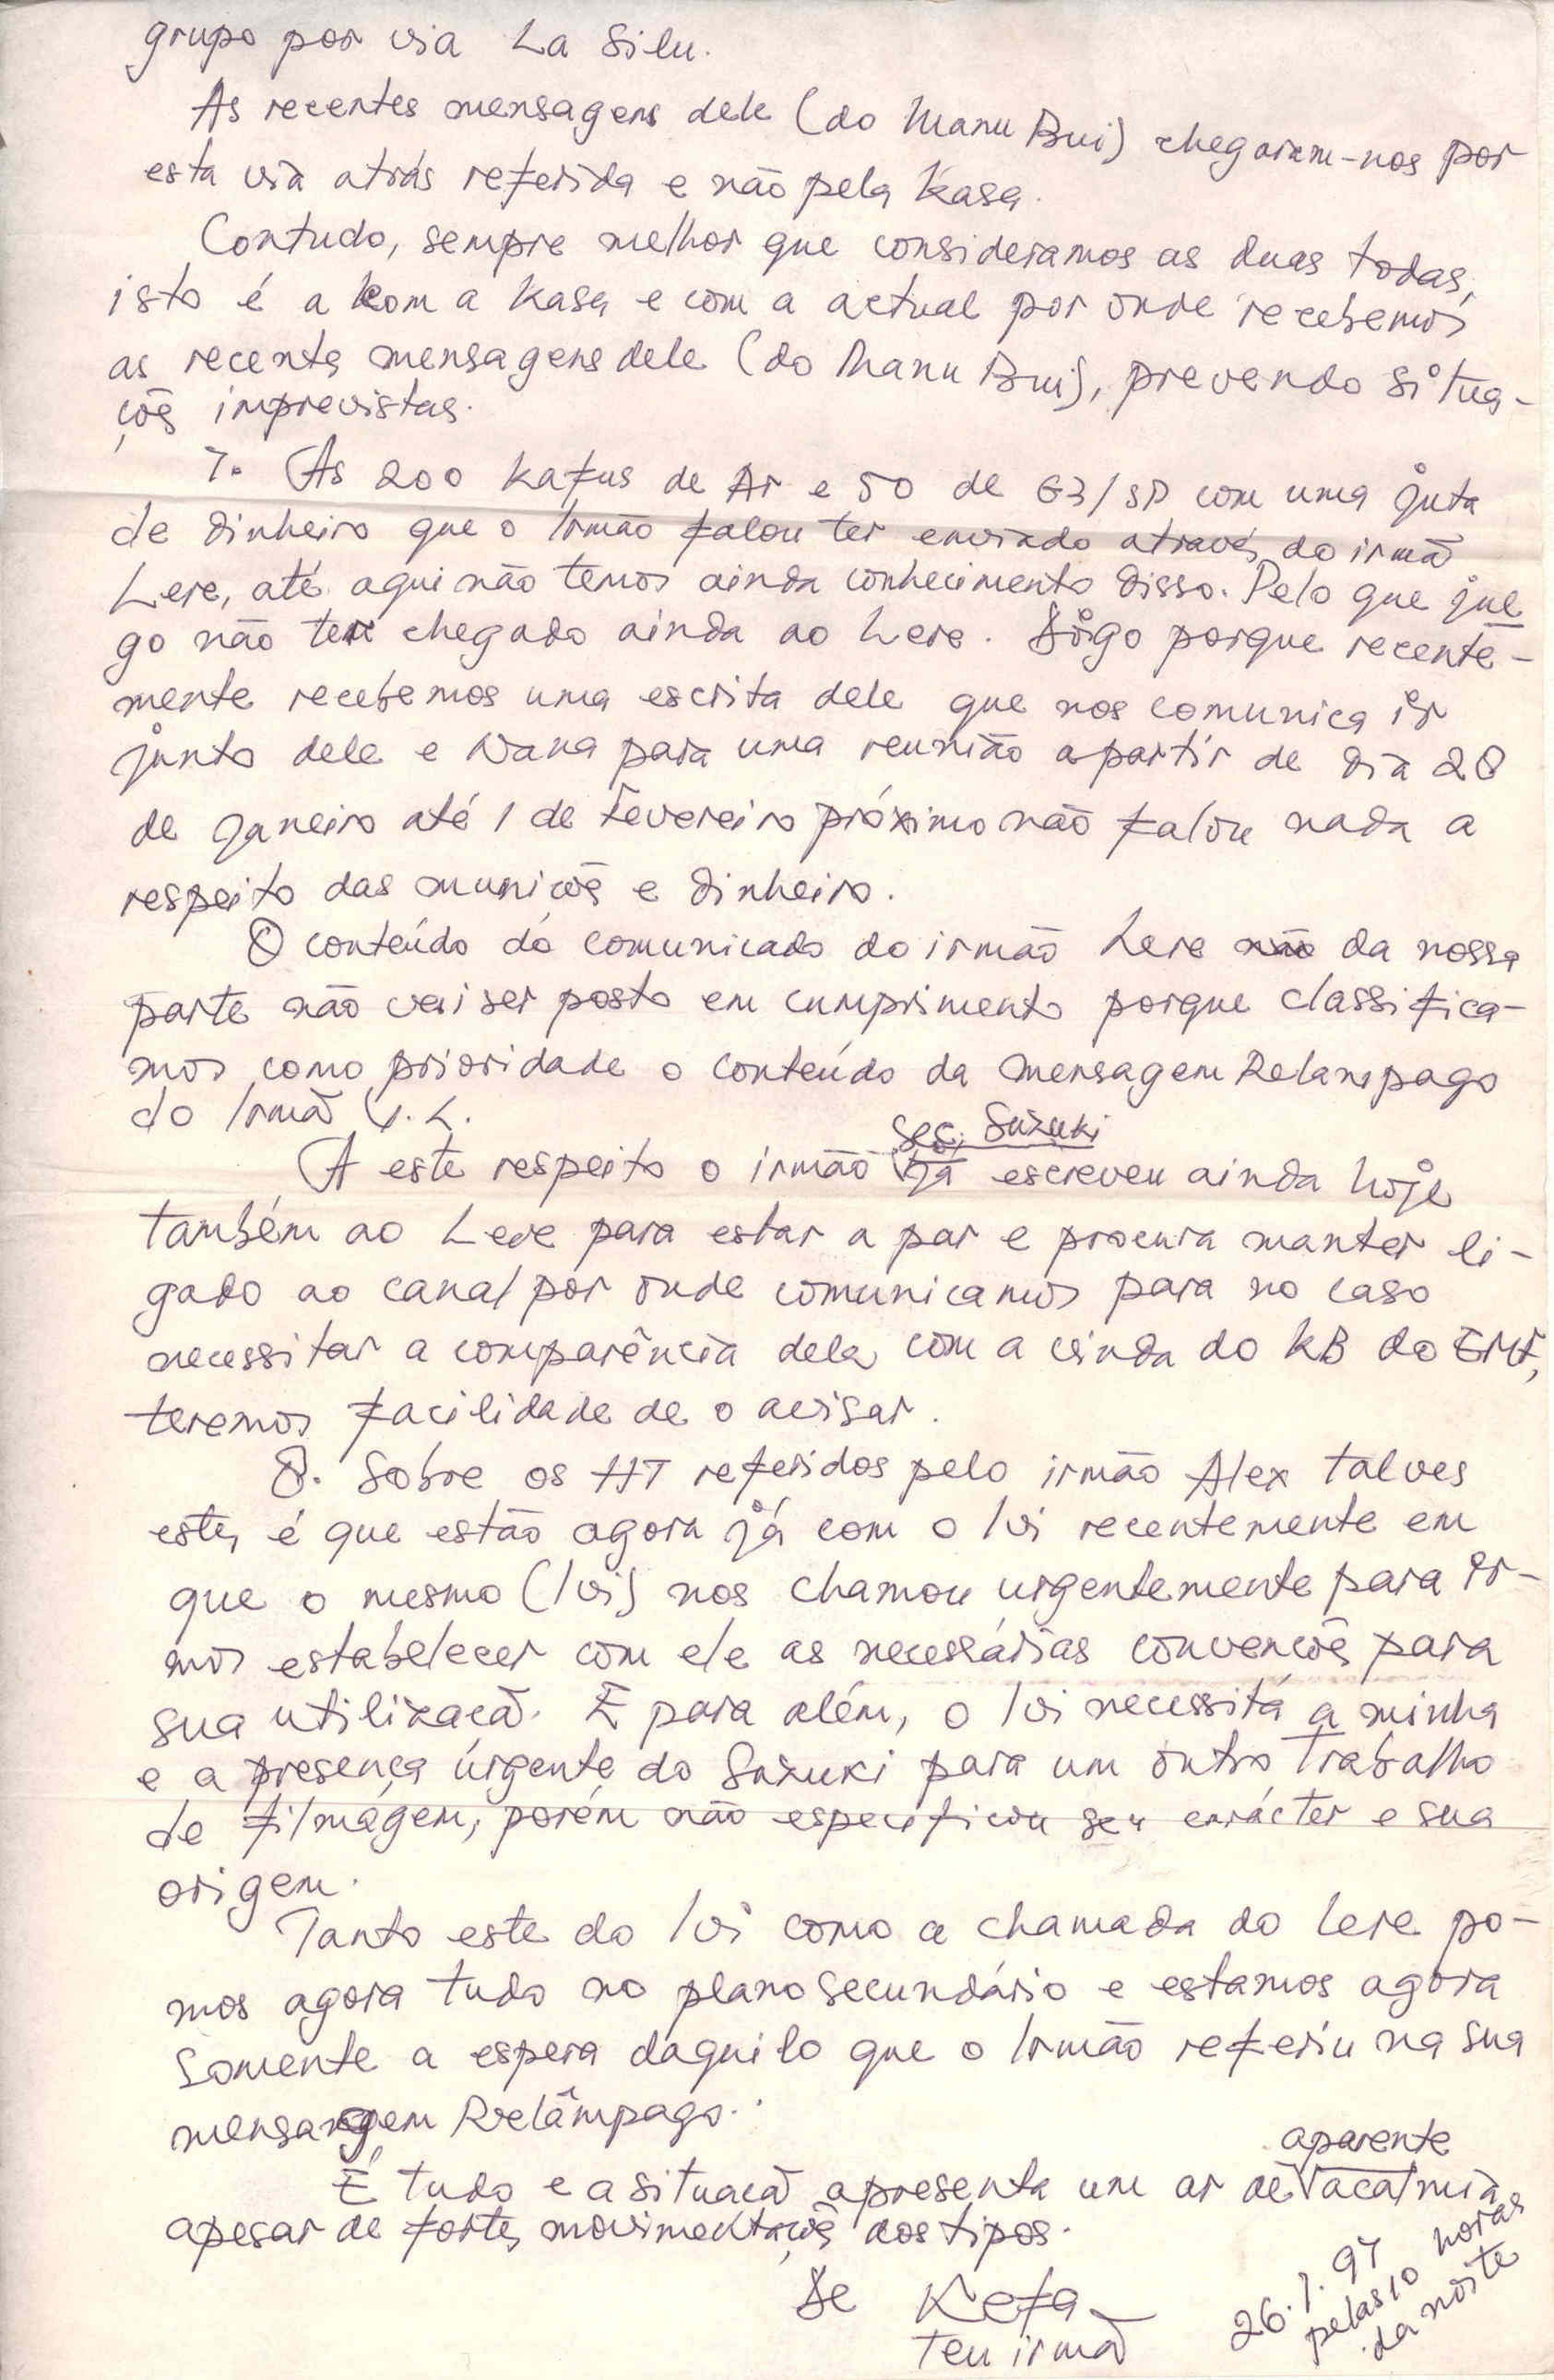 grupo por via La Silu.
As recentes mensagens dele (do Manu Bui) chegaram-nos por
esta via atrás referida e não pela Kasa.
Contudo, sempre melhor que consideramos as duas todas,
isto é a kom a Kasa e com a actual por onde recebemos
as recentes mensagens dele (do Manu Bui), prevendo situa-
çõs imprevistas.
7. As 200 kafus de Ar e 50 de G3/SP com uma juta
de dinheiro que o Irmão falou ter enviado através do irmã
Lere, até aqui não temos ainda conhecimento disso. Pelo que jul
go não ter chegado ainda ao Lere. Digo porque recente-
mente recebemos uma escrita dele que nos comunica ir
junto dele e Nana para uma reunião apartir de dia 28
de Janeiro até 1 de Fevereiro próximo não falou nada a
respeito das municõs e dinheiro.
O conteúdo do comunicado do irmão Lere da nossa
parte não vai ser posto em cumprimento porque classifica-
mos como prioridade o conteúdo da mensagem Relampago
do Irmã V. L.
Sec. Suzuki
A este respeito o irmão já escreveu ainda hoje
também ao Lere para estar a par e procura manter li-
gado ao canal por onde comunicamos para no caso
necessitar a comparência dela com a vinda do KB do EMF,
teremos facilidade de o avisar.
8. Sobre os HT referidos pelo irmão Alex talves
estes é que estão agora já com o lvi recentemente em
que o mesmo (lvi) nos chamou urgentemente para ir-
mos estabelecer com ele as necessárias convencõs para
sua utilizacã. E para além, o lvi necessita a minha
e a presença urgente do Suzuki para um outro Trabalho
de filmágem, porém não especificou seu carácter e sua
origem.
Tanto este do lvi como a chamada do Lere po-
mos agora tudo no plano secundário e estamos agora
somente a espera daquilo que o Irmão referiu na sua
mensagem Relâmpago.
aparente
É tudo e a situacã apresenta um ar de acalmia
apesar de fortes movimentacõs dos tipos.
De Kefa
teu irmã
26.1.97
pelas 10 horas
da noite